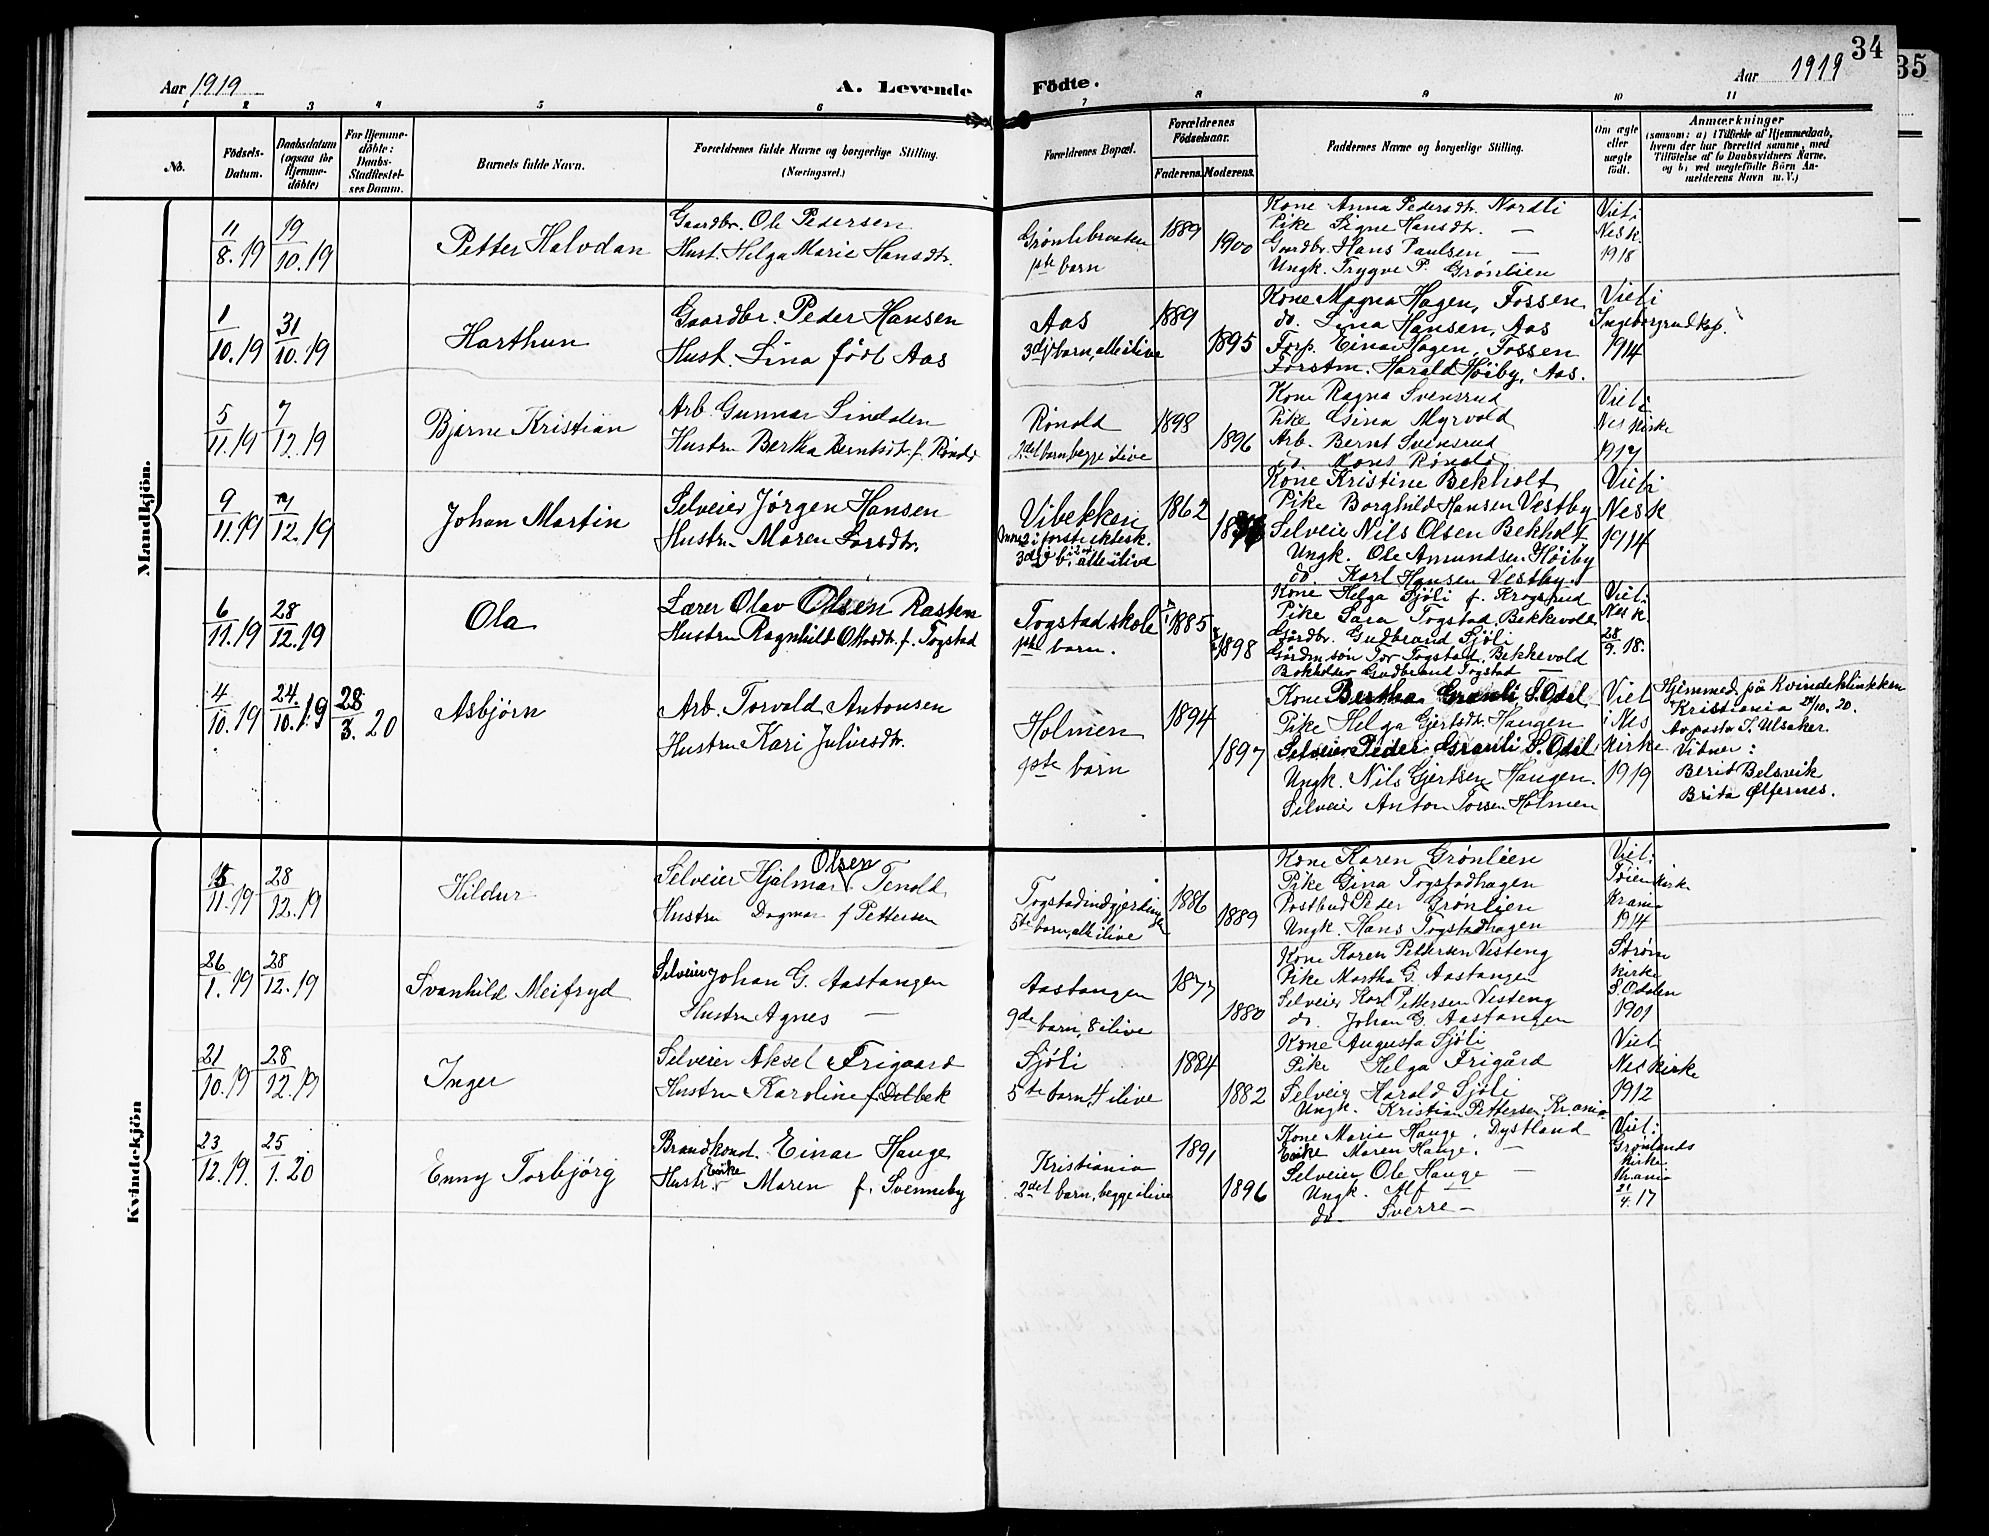 34
35
Aar 1919
A. Levende
Födte.
Aar 1919
1 2 3 4 5 6 7 8 9 10 11
No.
Födsels-
Datum.
Daabsdatum
(ogsaa for
Hjemme-
döbte)
For Hjemme-
döbte:
Daabs-
Stadfæstel-
ses Datum.
Barnets fulde Navn.
Forældrenes fulde Navne og borgerlige Stilling.
(Næringsvei.)
Forældrenes Bopæl.
Forældrenes
Födselsaar.
Faderens.
Moderens.
Faddernes Navne og borgerlige Stilling.
Om ægte
eller
uægte
født.
Anmærkninger
(saasom: a) i Tilfælde af Hjemmedaab,
hvem der har forrettet samme, med
Tilföielse af to Daabsvidners Navne,
og b) ved uægtefödte Börn An-
melderens Navn m. V.)
Mandkjön.
11/8.19
19/10.19
Petter Halvdan
Gaardbr. Ole Pedersen
Hust. Helga Marie Hansdtr.
Grønlibraaten
1ste barn
1889
1900
Kone Anna Pedersdtr. Nordli
Pike Signe Hansdtr. —
Gaardbr. Hans Paulsen —
Ungk. Trygve P. Grønlien
Viet i
Nes k.
1918
1/10.19
31/10.19
Harthun
Gaardbr. Peder Hansen
Hust. Lina født Aas
Aas
3dje barn, alle ilive
1889
1895
Kone Magna Hagen, Fossen
do. Lina Hansen, Aas
Forp. Einar Hagen, Fossen
Forstm. Harald Høiby, Aas.
Viet i
Ingeborgrud kap.
1914
5/11.19
7/12.19
Bjarne Kristian
Arb. Gunnar Lindalen
Hustru Bertha Berntsdt. f. Rønold
Rønold
2det barn, begge ilive
1898
1896
Kone Ragna Svensrud
Pike Gina Myrvold
Arb. Bernt Svensrud
do Mons Rønold
Viet i
Nes kirke
1917
9/11.19
7/12.19
Johan Martin
Selveier Jørgen Hansen
Hustru Maren Larsdtr.
Vibekken
3dje b. i 2det, alle ilive
1862
Kone Kristine Bekholt
Pike Borghild Hansen Vestby
Selveier Nils Olsen Bekholt
Ungk. Ole Amundsen Høiby
do. Karl Hansen Vestby
Viet i
Nes k
1914
6/11.19
28/12.19
Ola
Lærer Olav Olsen Rasten
Hustru Ragnhild Ottosdtr. f. Togstad
Togstad skole
1ste barn.
1885
1898
Kone Helga Sjøli f. Krogsrud
Pike Sara Togstad, Bekkevold
Gårdbr. Gudbrand Sjøli
Gårdm. søn Tor Togstad, Bekkevold
Bokholder Gudbrand Togstad —
Viet i
Nes k.
28/9.18.
4/10.19
24./10.19
28/3.20
Asbjørn
Arb. Torvald Antonsen
Hustru Kari Juliusdtr.
Holmen
1ste barn
1894
1897
Kone Bertha Granli S. Odal
Pike Helga Gjertsdtr. Haugen
Selveier Peder Granli S. Odal
Ungk. Nils Gjertsen Haugen.
Selveier Anton Torsen Holmen
Viet
i Nes
kirke
1919
Hjemmed. på Kvindeklinikken
Kristiania 24/10. 20.
Av pastor S. Ulsaker.
Vitner:
Berit Belsvik
Brita Ølfernes.
Kvindekjön
15/11.19
28/12.19
Hildur
Selveier Hjalmar Olsen Tenold
Hustru Dagmar f Pettersen
Togstadindgjerdingen
5te barn, alle ilive
1886
1889
Kone Karen Grønlien
Pike Gina Togstadhagen
Postbud Peder Grønlien
Ungk. Hans Togstadhagen
Viet i
Tøien kirk
Krania
1914
26/1.19
28/12.19
Svanhild Meifryd
Selveier Johan G. Aastangen
Hustru Agnes —
Aastangen
9de barn, 8 ilive
1877
1880
Kone Karen Pettersen Vesteng
Pike Martha G. Aastangen
Selveier Karl Pettersen Vesteng
do. Johan G. Aastangen
Strøm
kirke
S. Odalen
1901
21/10.19
28/12.19
Inger
Selveier Aksel Frigaard
Hustru Karoline f. Dælbek
Sjøli
5te barn, 4 ilive
1884
1882
Kone Augusta Sjøli
Pike Helga Frigård
Selveier Harald Sjøli
Ungk. Kristian Pettersen, Kr.ania
Viet
Nes kirke
1912
23/12.19.
25/1.20
Enny Torbjørg
Brandkonst. Einar Hauge
Hustr. Enike Maren f. Svenneby
Kristiania
2det barn, begge ilive
1891
1896
Kone Marie Hauge, Dystland
Enike Maren Hauge, —
Selveier Ole Hauge —
Ungk. Alf —
do. Sverre —
Viet i
Grønlands
kirke.
Kr.ania
21/4.17